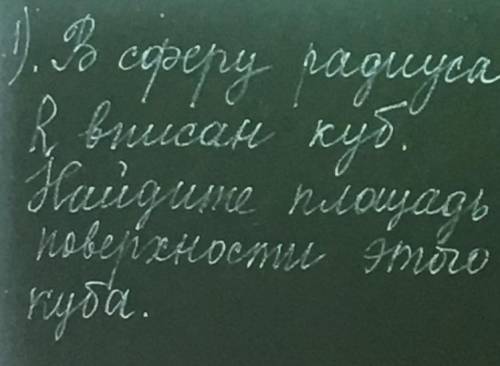 1). В сферу радиуса
R вписан куб.
Найдите площадь
поверхности этого
куба.